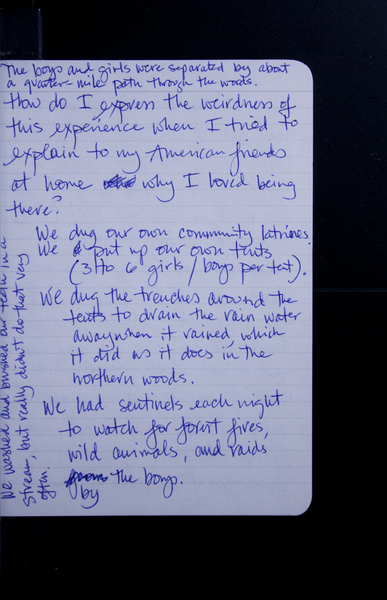 The boys and girls were separated by about
a quarter-mile path through the woods.
How do I express the weirdness of
this experience when I tried to
explain to my American friends
at home why I loved being
there?
We dug our own community latrines.
We put up our own tents
(3 to 6 girls/boys per tent).
We dug the trenches around the
tents to drain the rain water
away when it rained, which
it did as it does in the
northern woods.
We had sentinels each night
to watch for forest fires,
wild animals, and raids
by the boys.
We washed and brushed our teeth in a
stream, but really didn't do that very
often.